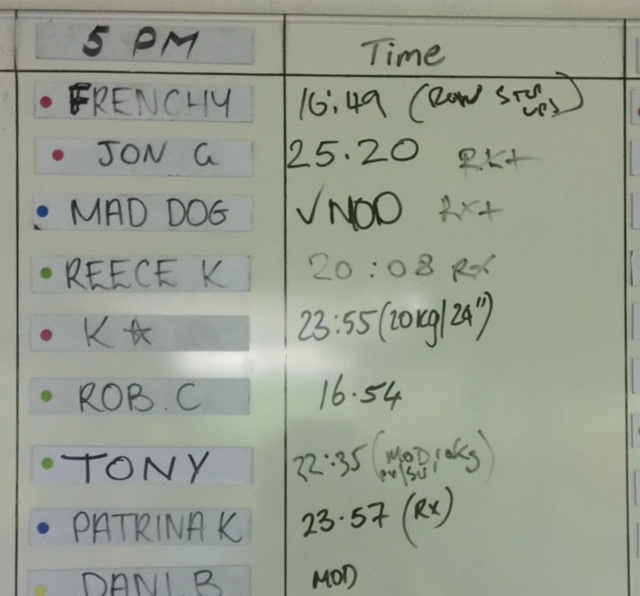 5 PM Time
FRENCHY 16:49 (ROW STEP UPS)
JON G 25.20 RX+
MAD DOG √NOD RX+
REECE K 20:08 RX
K☆ 23:55 (20kg/24")
ROB.C 16.54
TONY 22:35 (MOD 10kg)
PATRINA K 23.57 (Rx)
DANI.B MOD